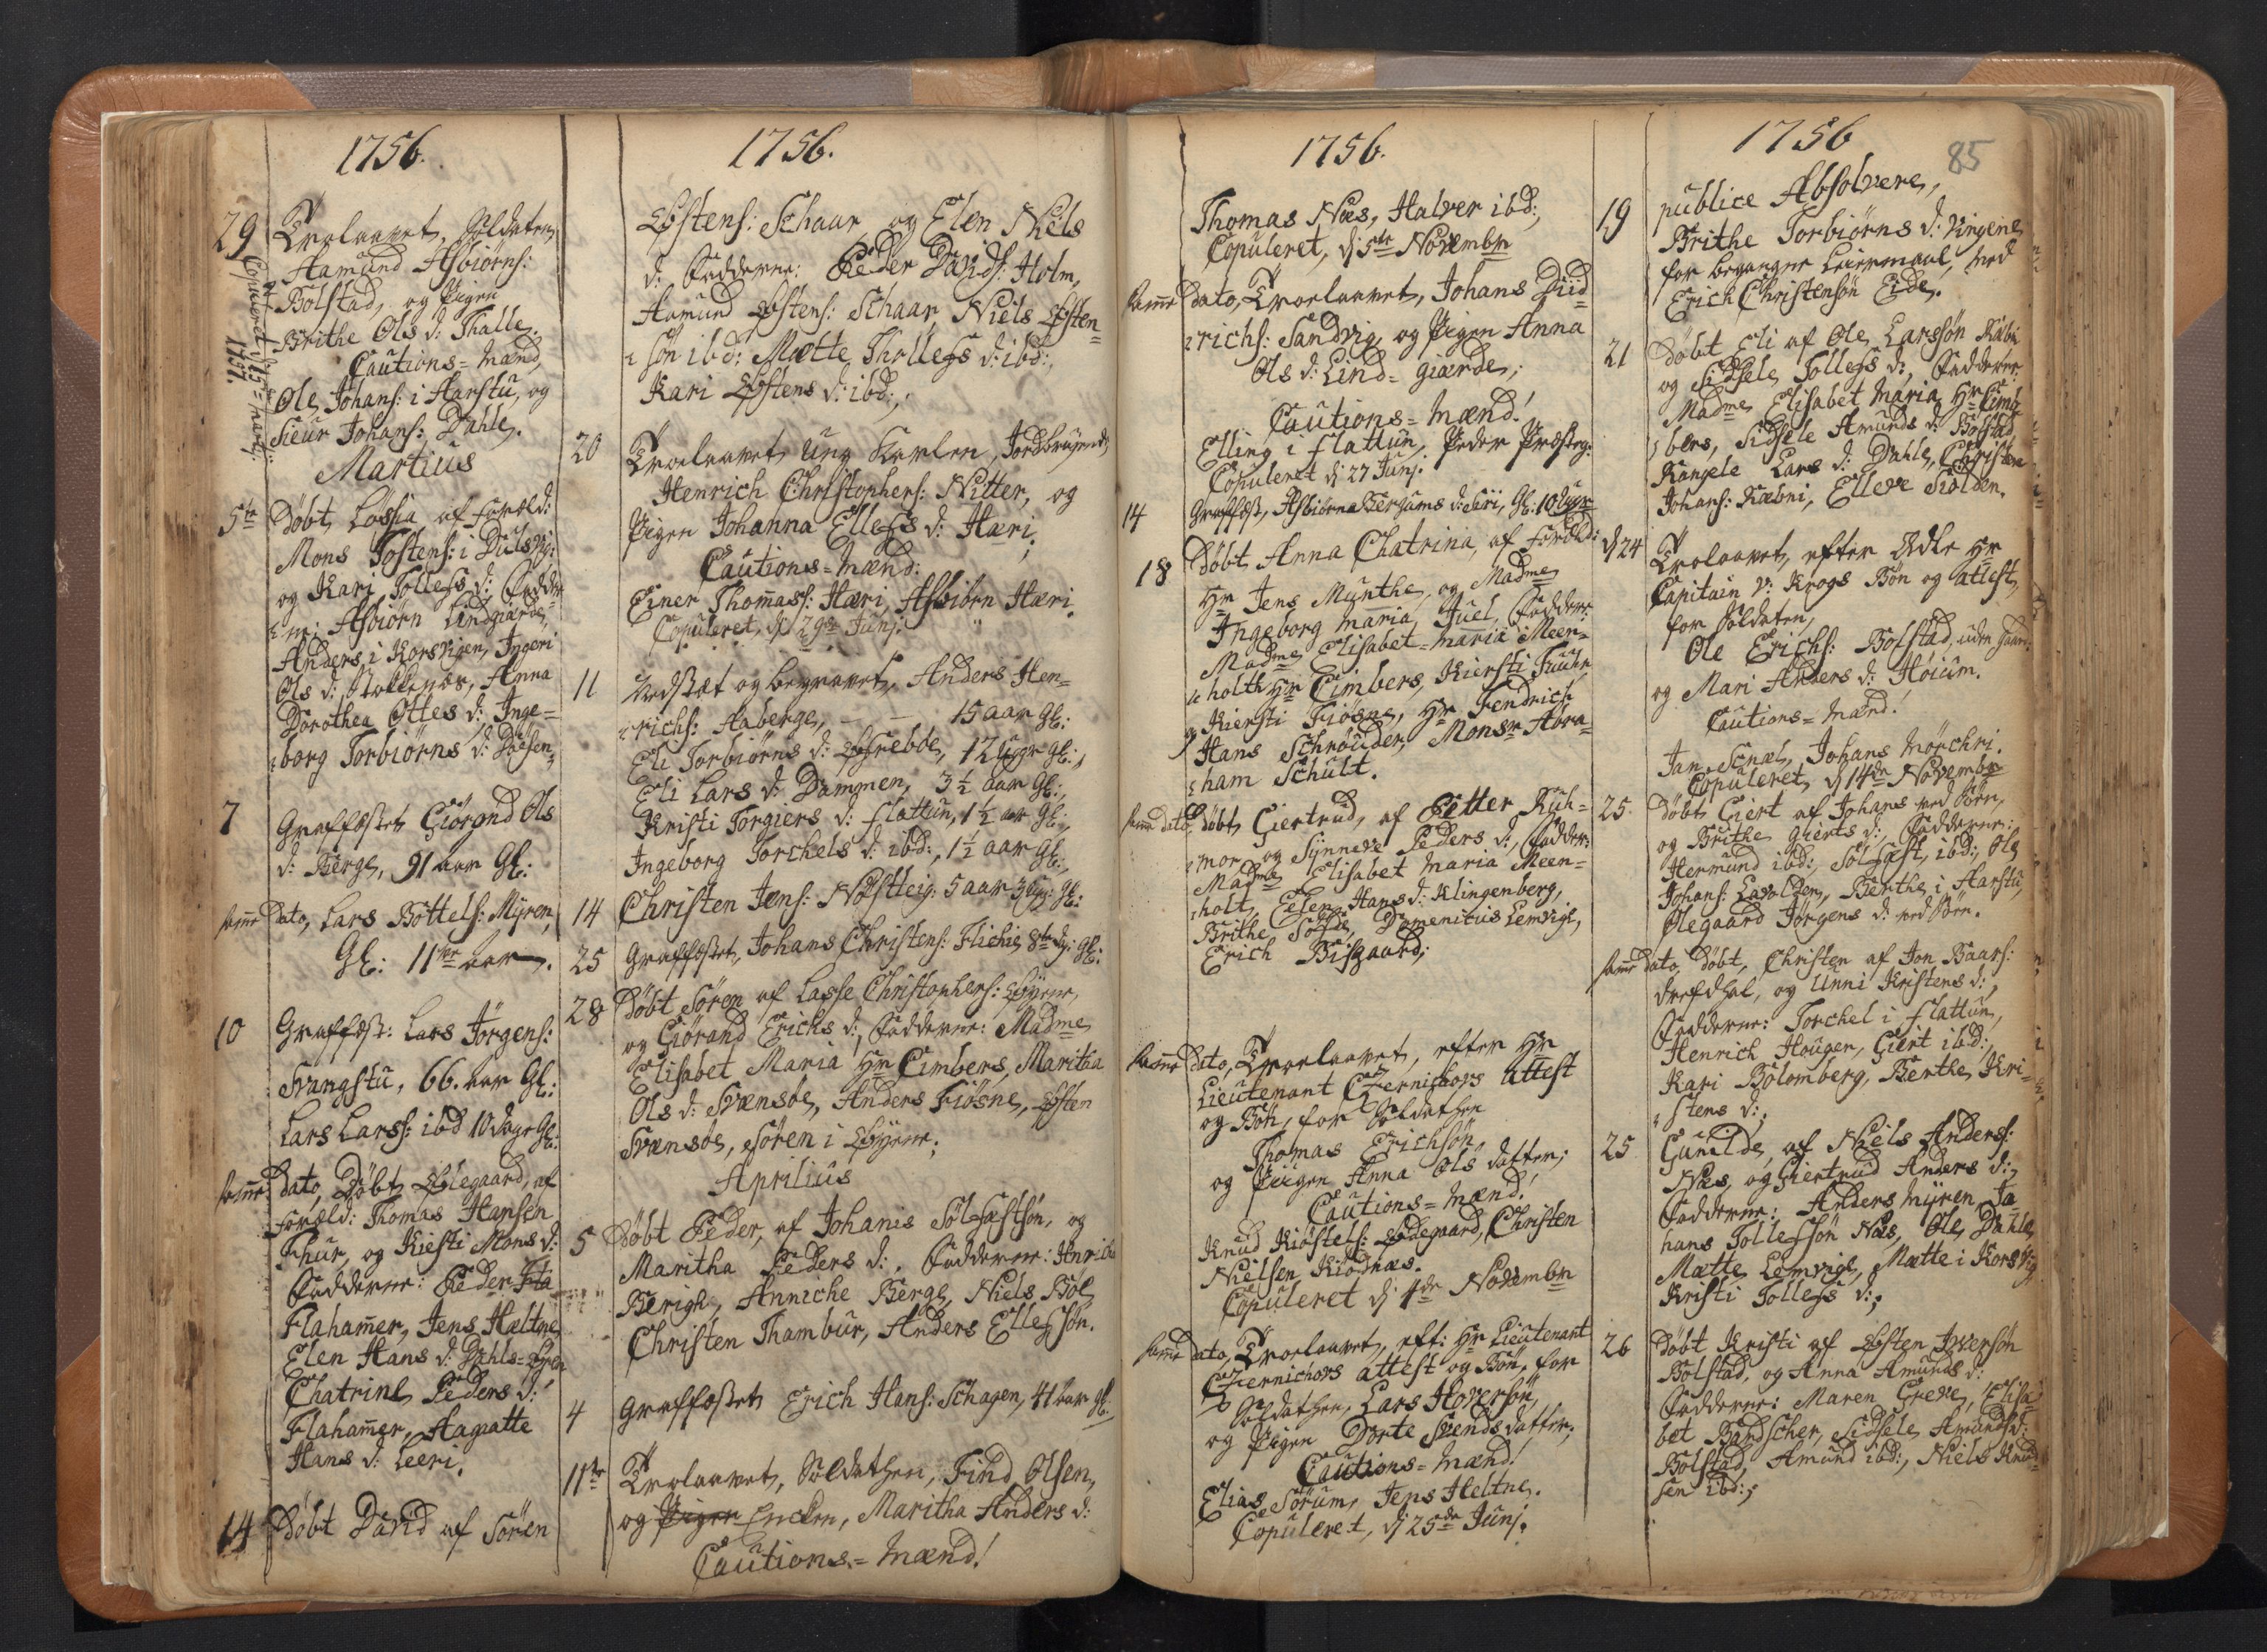 1756.
29 Trolaavet, Soldaten
Aamund Asbiørns:
Bolstad, og Pigen
Brithe Ols d: Thalle.
Cautions=Mænd,
Ole Johans: i Harstu, og
Sieur Johans: Dahle.
Copuleret d:
1757.
Martius
5te Døbt, Lossia, af Foræld:
Mons Tostens: i
og Kari Tollefs d: Fadde
Asbiørn Lindgiærde,
Anders i Korsvigen, Ingeri
Ols d: Anna
Dorothea Ottes d: Inge=
borg Torbiørns d:
7 Graffæstet Giørond Ols
d: Berge, 91 aar Gl:
samme Dato, Lars Bottels: Myren,
Gl: 11 aar.
10 Graffæst: Lars Jørgens:
Svangstu, 66. aar Gl:
Lars Larss: ibd 10 dage Gl:
samme Dato, Døbt Ølegaard, af
Foræld: Thomas Hansen
og Kiesti Mons d:
Fadderne: Peder
Flahamer, Jens Hæltne,
Elen Hans d:
Chatrine Peders d:
Flahamer, Aagatte
Hans d: Leeri.
14 Døbt David af Søren
1756.
Østens: Schaar og Elen Niels
d: Fadderne: Peder Davids: Holm,
Aamund Østens: Schaar Niels Østen=
søn ibd: Mætte Thollefs d: ibd:,
Kari Østens d: ibd:,
20 Troelaavet Ung Karlen
Henrich Christophers: Nitter, og
Pigen Johanna Ellefs d: Hæri,
Cautions=Mænd:
Einer Thomass: Hæri, Asbiørn Hæri.
Copuleret, d: 29de Junj.
11 Indsæt og begravet, Anders Hen=
richs: Aaberge, — — 15 aar Gl:
Eli Torbiørns d: 12 uger Gl:,
Eli Lars d: Dammen, 3½ aar Gl:,
Kristi Torgiers d: Flattun, 1½ aar Gl:,
Ingeborg Torchels d: ibd:, 1½ aar Gl:,
14 Christen Jens: 5 aar Gl:
25 Graffæstet, Johans Christens: 8te Gl:
28 Døbt Søren af Lasse Christophers: Øyene,
og Giørand Erichs d:, Fadderne: Madme
Elisabet Maria Hr Cimbers, Maritha
Ols d: Svensøe, Anders Fiøsne, Østen
Svensøe, Søren i Øyene.
Aprilius
5 Døbt Peder, af Johanis Solfæstsøn, og
Maritha Peders d:, Fadderne:
Anniche Berge, Niels Bøe,
Christen Thambur, Anders Ellefsøn.
4 Graffæstet Erich Hans: Schagen, 41 aar Gl:
11te Trolaavet, Soldathen, Find Olsen,
og Pigen Encken, Maritha Anders d:
Cautions=Mænd!
1756.
Thomas Næs, Halver ibd:,
Copuleret, d: 5te Novembr
samme Dato, Troelaavet, Johans Diid=
richs: Sandvig, og Pigen Anna
Ols d: Lind=giærde;
Cautions=Mænd!
Elling i Flattun, Peder
Copuleret d: 27 Junj.
14 Graffæst, Asbiørna Bergums d: Gl: 10
18 Døbt Anna Chatrina, af Foræld:
Hr Jens Munthe, og Madme
Ingeborg Maria Juel, Fadder:
Madme Elisabet=Maria Meer=
holth, Hr Cimbers, Kiersti
Kiersti Fiøsne, Hr Fendrich
Hans Schrøuder, Monsr Abra=
ham Schult.
samme Dato, Døbt, Giertrud, af Petter Kuh=
mor, og Synneve Peders d:, Fadder:
Madme Elisabet Maria Meen=
holt, Elsen Hans d: Klingenberg,
Brithe Domenicus Lemvige,
Erich Bisgaard;
samme Dato, Troelaavet, efter Hr
Lieutenant Czernichovs attest
og Bøn, for Soldathen
Thomas Erichsøn,
og Piigen Anna Ols datter;
Cautions=Mænd!
Knud Kiøstels: Ødegaard, Christen
Nielsen
Copuleret d: 4de Novembr
samme Dato, Troelaavet, eft: Hr Lieutenant
Czernichovs attest og Bøn, for
Soldathen, Lars Hoversøn,
og Pigen Dorte Svends datter;
Cautions=Mænd!
Elias Sørum, Jens Heltne.
Copuleret, d: 25de Junj.
1756
85
19 publice Absolveret,
Brithe Torbiørns d:
for begangne Leiermaal, med
Erich Christensøn Eide.
21 Døbt Eli af Ole Larssøn Kæbni
og Sidsele Tollefs d:, Fadderne
Madme Elisabet Maria Hr Cim=
bers, Sidsele Amunds d: Bolstad,
Kangele Lars d: Dahle, Christen
Johans: Kæbni, Elleve Siolden.
d: 24 Trolaavet, efter Ædle Hr
Capitain v: Krogs Bøn og attest,
for Soldaten,
Ole Erichs: Bolstad,
og Mari Anders d: Høium.
Cautions=Mænd!
Jan Johans Mørchri.
Copuleret, d: 14de Novembr
25. Døbt Giert af Johans ved Søen,
og Brithe Gierts d:, Fadderne:
Hermund ibd:, Solfæst, ibd:, Ole
Johans: Berthe i Harstu,
Ølegaard Jørgens d: ved Søen.
samme Dato, Døbt, Christen af Jon Baars:
og Unni Kristens d:,
Fadderne: Torchel i Flattun,
Henrich Hougen, Giert ibd:,
Kari Bolomberg, Berthe Kri=
stens d:,
25 Gunilde, af Niels Anders:
Næs, og Giertrud Anders d:,
Fadderne: Anders Myren, Jo=
hans Tollefsøn Næs, Ole Dahle,
Mætte Lemvige, Mætte i Korsvig,
Kristi Tollefs d:;
26 Døbt Kristi af Østen Iversøn
Bolstad, og Anna Amunds d:
Fadderne: Maren Greve, Elisa=
bet Bardscher, Sidsele Amunds d:
Bolstad, Amund ibd:, Niels Knud=
sen ibd:;